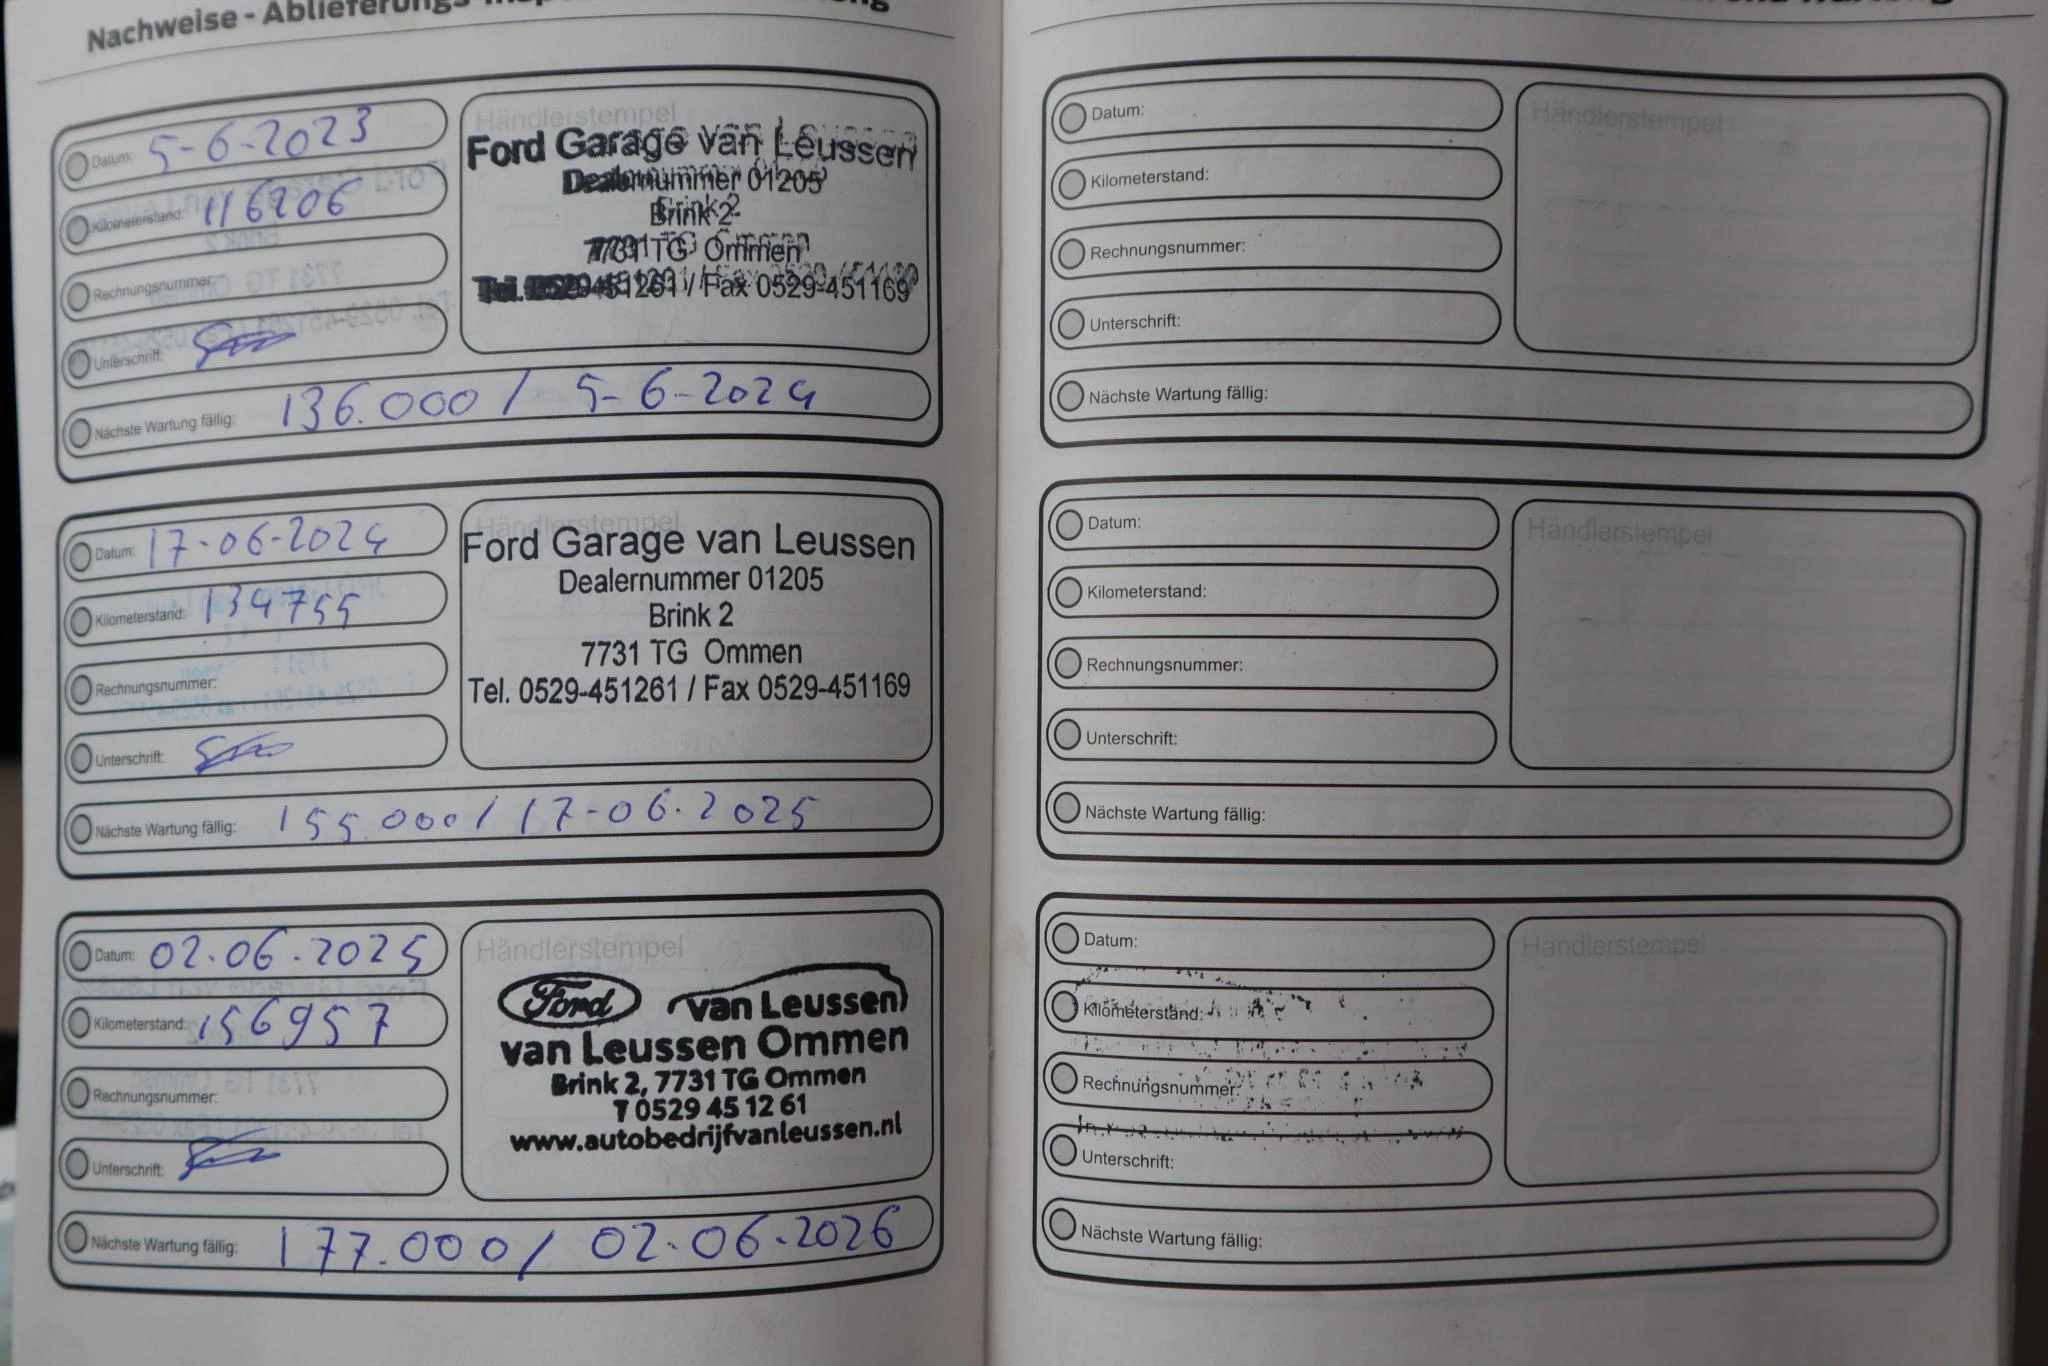 Nachweise - Ablieferungs-
Händlerstempel
Datum: 5-6-2023
Kilometerstand: 116206
Rechnungsnummer:
Unterschrift:
Ford Garage van Leussen
Dealernummer 01205
Brink 2
7731 TG Ommen
Tel. 0529-451261 / Fax 0529-451169
Nächste Wartung fällig: 136.000 / 5-6-2024
Händlerstempel
Datum: 17-06-2024
Kilometerstand: 134755
Rechnungsnummer:
Unterschrift:
Ford Garage van Leussen
Dealernummer 01205
Brink 2
7731 TG Ommen
Tel. 0529-451261 / Fax 0529-451169
Nächste Wartung fällig: 155.000 / 17-06-2025
Händlerstempel
Datum: 02.06.2025
Kilometerstand: 156957
Rechnungsnummer:
Unterschrift:
Ford van Leussen
van Leussen Ommen
Brink 2, 7731 TG Ommen
T 0529 45 12 61
www.autobedrijfvanleussen.nl
Nächste Wartung fällig: 177.000 / 02.06.2026
Datum:
Händlerstempel
Kilometerstand:
Rechnungsnummer:
Unterschrift:
Nächste Wartung fällig:
Datum:
Händlerstempel
Kilometerstand:
Rechnungsnummer:
Unterschrift:
Nächste Wartung fällig:
Datum:
Händlerstempel
Kilometerstand:
Rechnungsnummer:
Unterschrift:
Nächste Wartung fällig: